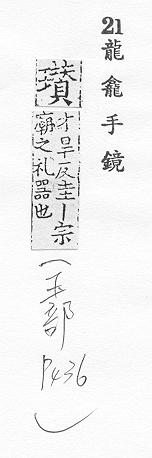 21 龍龕手鏡
瓉
才旱反圭丨宗
廟之礼器也
(玉部 P436)